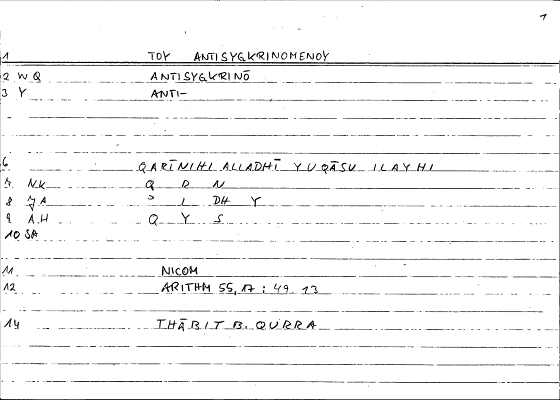 1
1 TOY ANTISYGKRINOMENOY
2 W Q ANTISYGKRINŌ
3 Y ANTI-
6 QARĪNIHI ALLADHĪ YUQĀSU ILAYHI
7 NK Q R N
8 JA ʾ L DH Y
9 AH Q Y S
10 SA
11 NICOM
12 ARITHM 55, 17 : 49. 13
14 THĀBIT B. QURRA